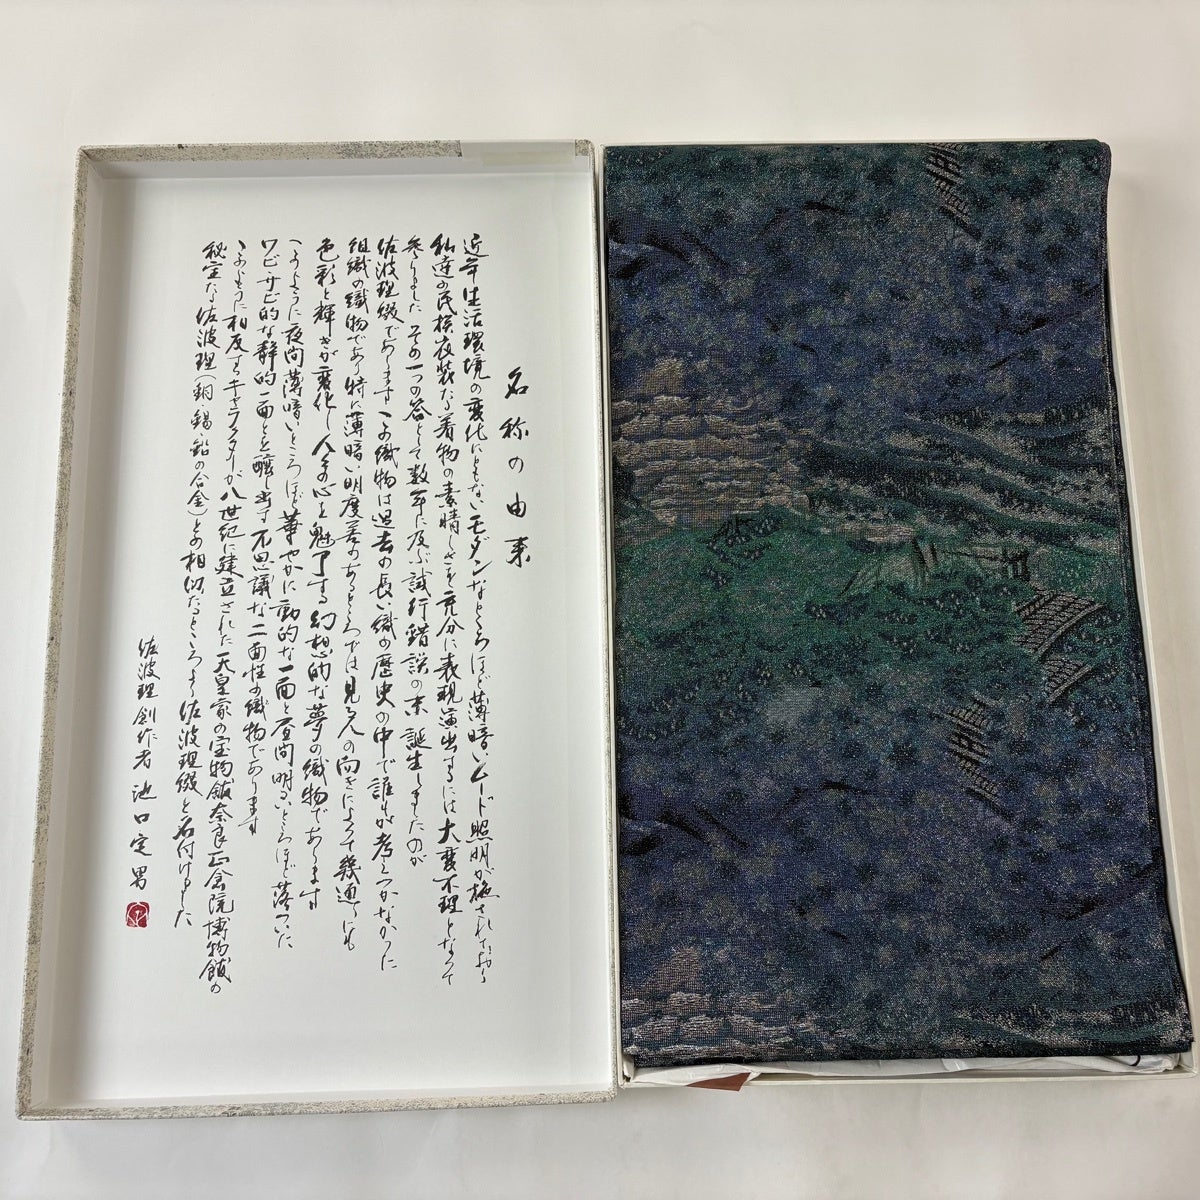 名称の由来
近年生活環境の変化にともないモダンなところほど薄暗いムード照明が施されており
私達の民族衣装なる着物の素晴しさを充分に表現演出するには大変不理となって
参りました その一つの答として数年に及ぶ試行錯誤の末 誕生しましたのが
佐波理綴であります この織物は過去の長い織の歴史の中で誰もが考えつかなかった
組織の織物であり特に薄暗い明度差のあるところでは見る人の向きによって幾通りにも
色彩と輝きが変化し人々の心を魅了する幻想的な夢の織物であります
このように夜間薄暗いところほど華やかに動的な一面と昼間明るいところほど落ついた
ワビサビ的な静的一面とを醸し出す不思議な二面性の織物であります
このように相反するキャラクターが八世紀に建立された天皇家の宝物館奈良正倉院博物館の
秘宝なる佐波理(銅・錫・鉛の合金)との相似たるところより佐波理綴と名付けました
佐波理創作者 池口定男